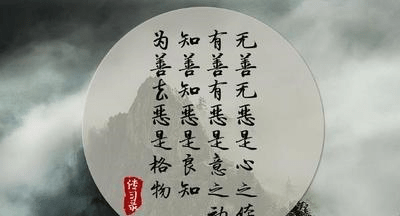 无善无惡是心之体
有善有惡是意之动
知善知惡是良知
为善去惡是格物
传习录